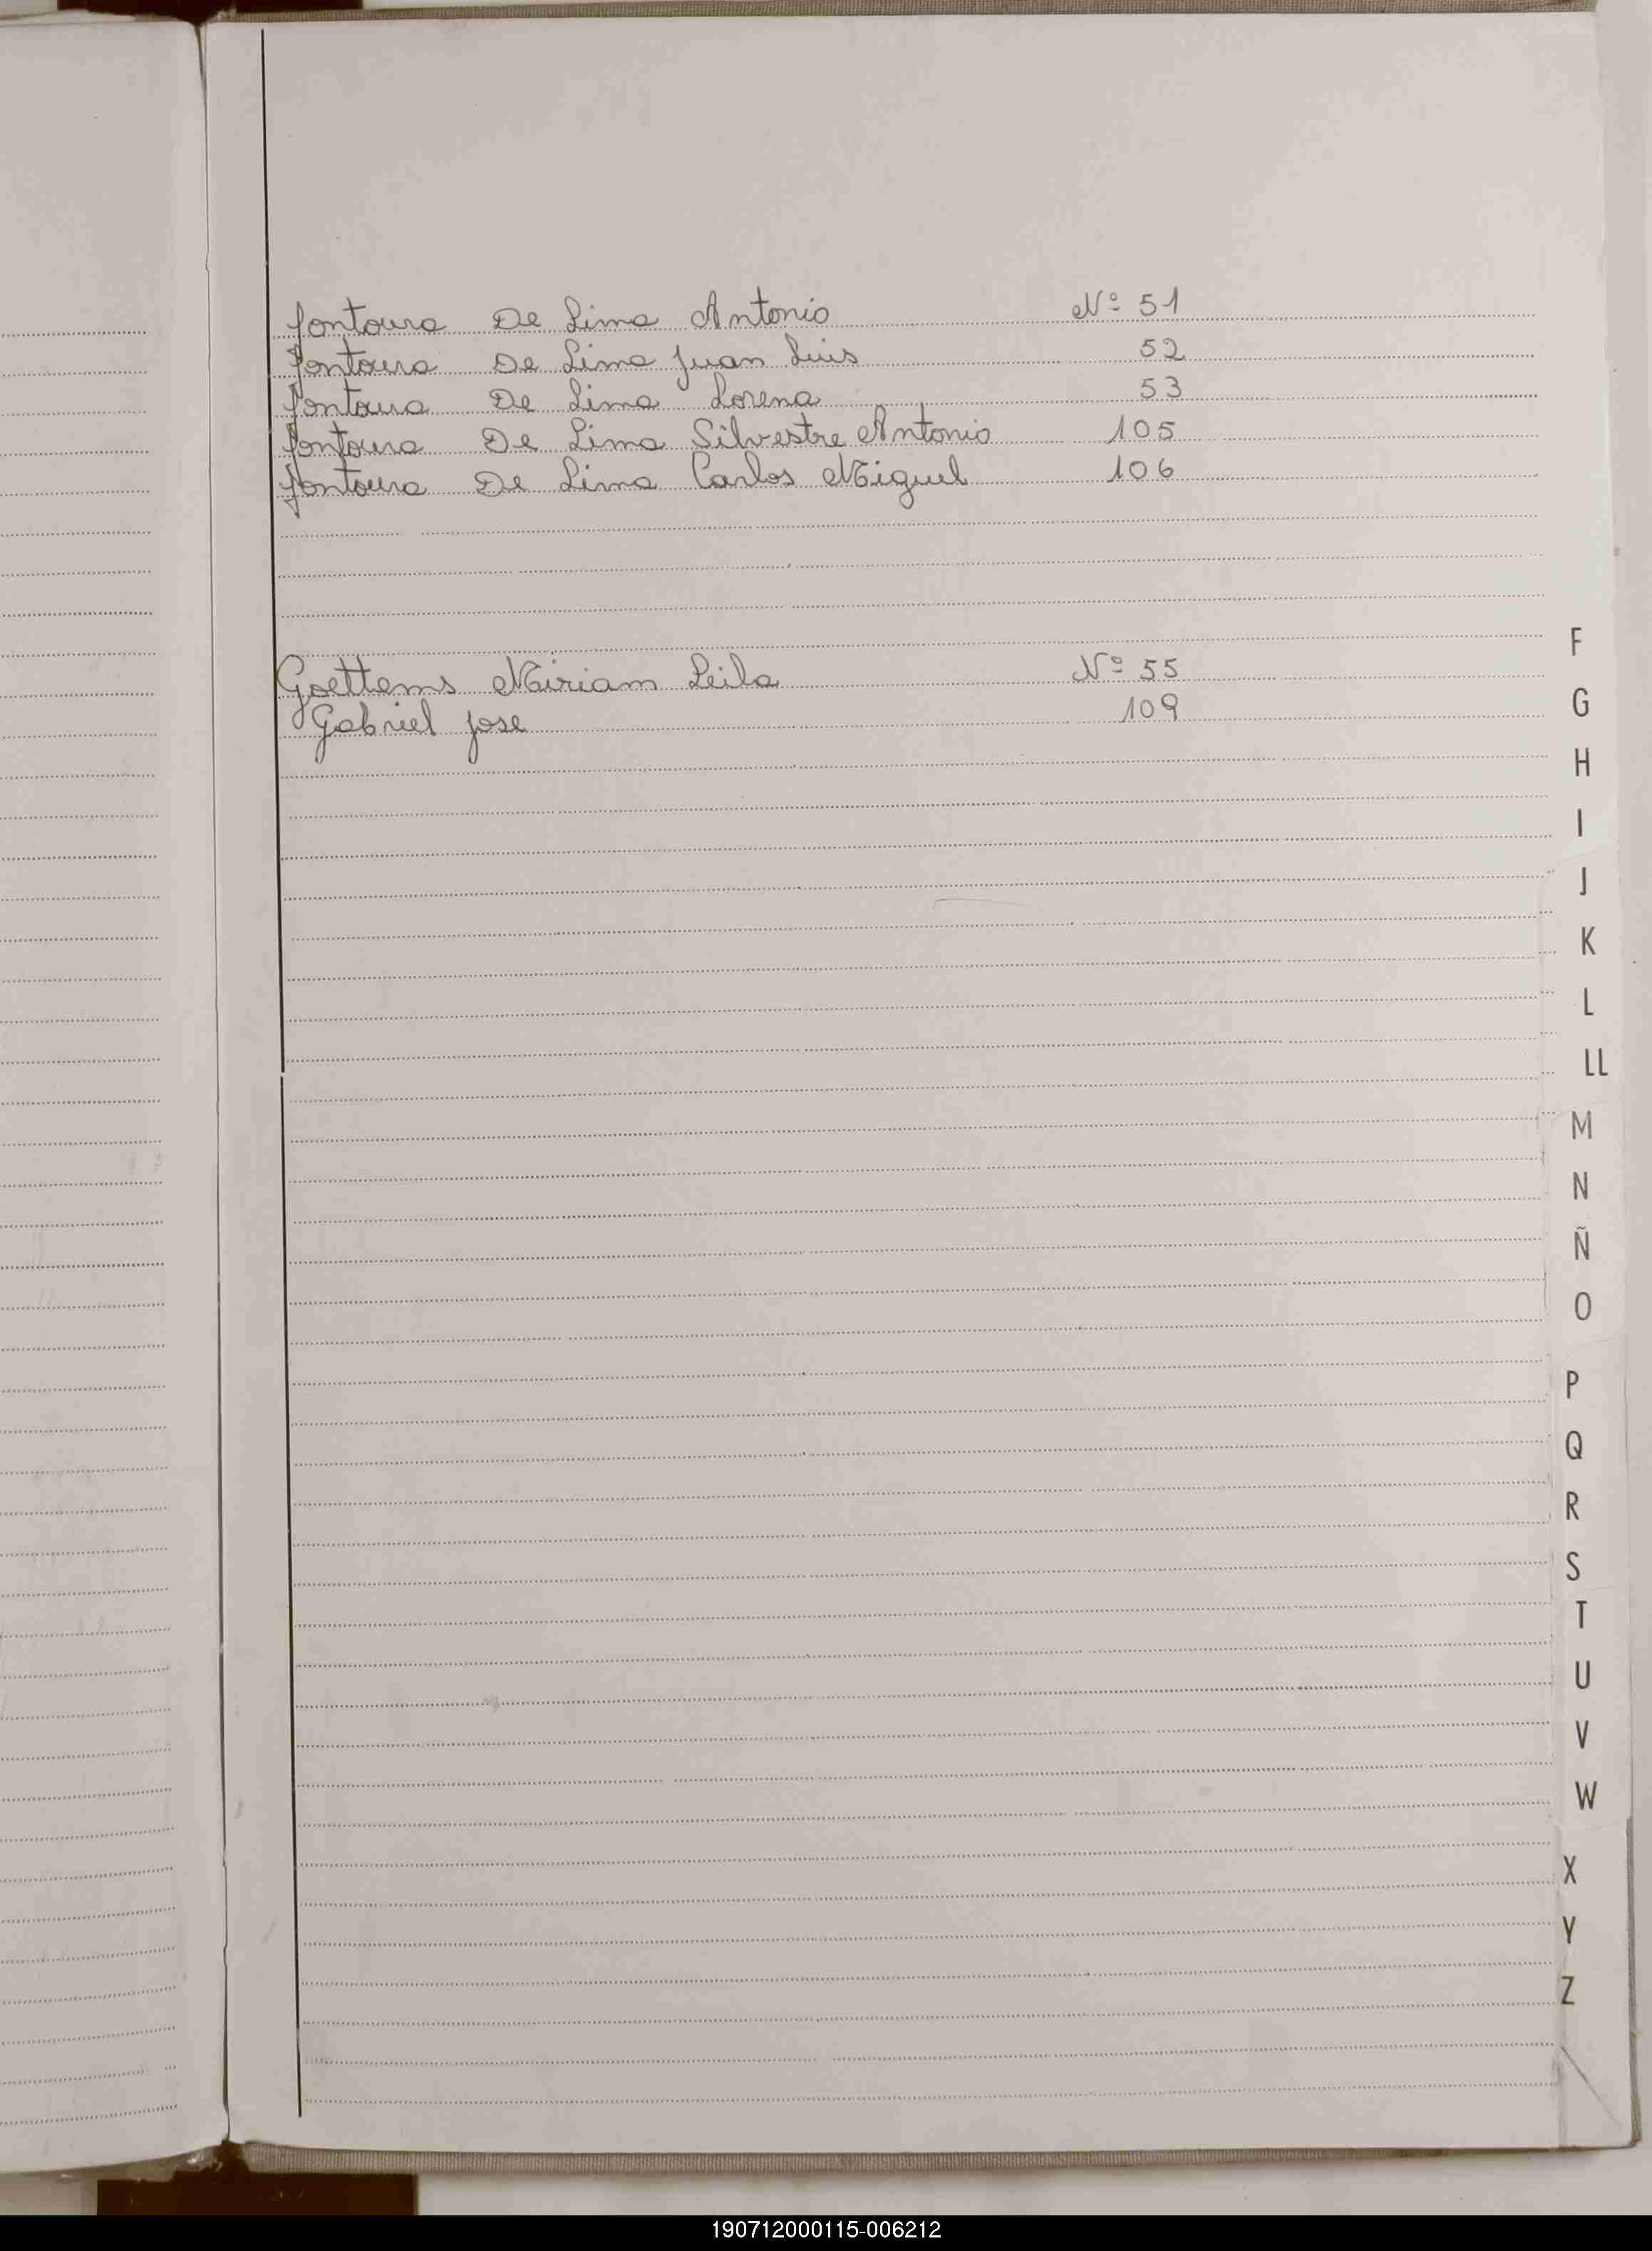 Fontoura De Lima Antonio Nº 51
Fontoura De Lima Juan Luis 52
Fontoura De Lima Lorena 53
Fontoura De Lima Silvestre Antonio 105
Fontoura De Lima Carlos Miguel 106
Goettems Miriam Leila Nº 55
Gabriel Jose 109
F
G
H
I
J
K
L
LL
M
N
Ñ
O
P
Q
R
S
T
U
V
W
X
Y
Z
190712000115-006212